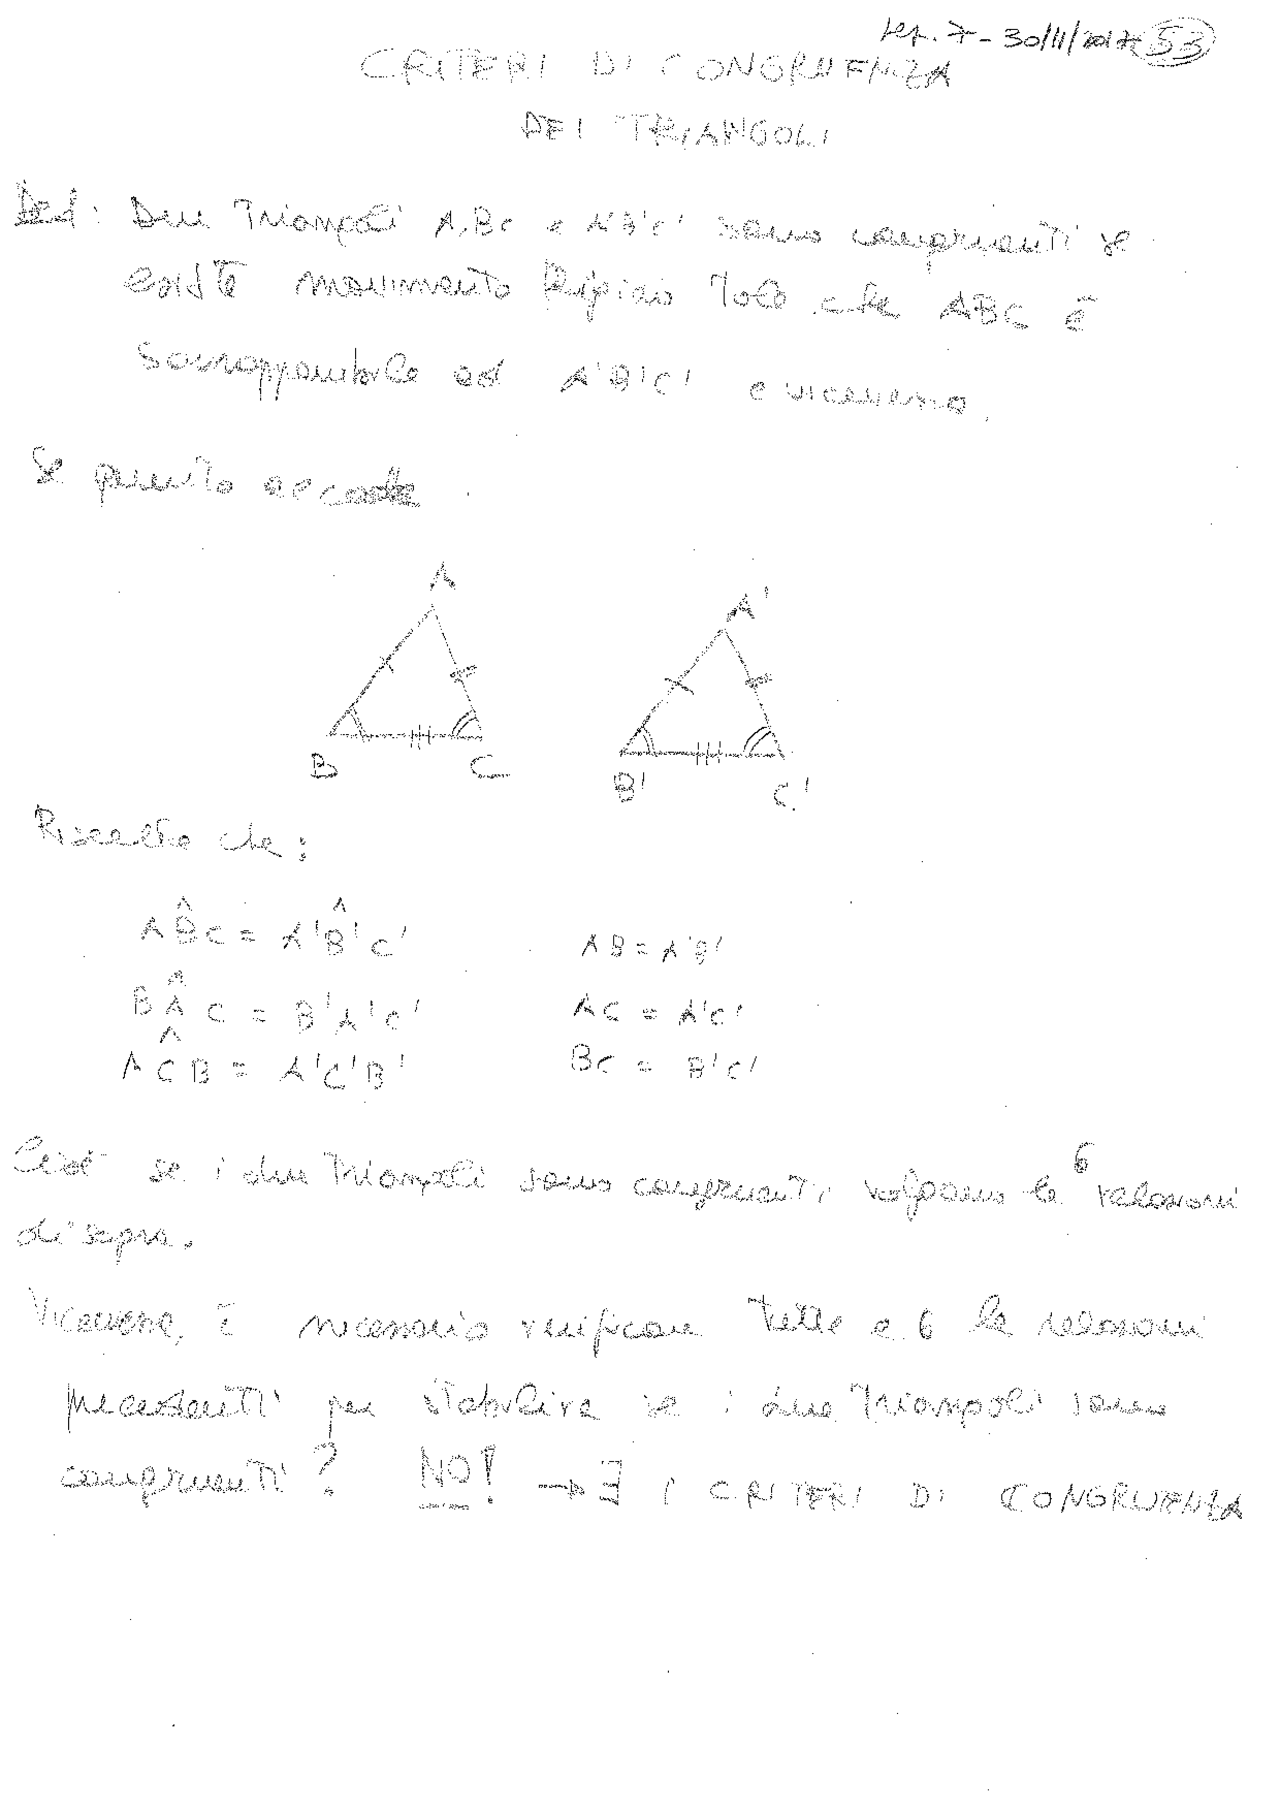 Lez. 7 - 30/11/2017 53
CRITERI DI CONGRUENZA
DEI TRIANGOLI
Def: Due Triangoli ABC e A'B'C' sono congruenti se
esiste movimento Rigido Tale che ABC è
Sovrapponibile ad A'B'C' e viceversa.
Se questo accade
A
A'
B
C
B'
C'
Risulta che:
AB̂C = A'B̂'C'
AB = A'B'
BÂC = B'A'C'
AC = A'C'
AĈB = A'C'B'
BC = B'C'
Cioè se i due Triangoli sono congruenti valgono le 6 relazioni
di sopra.
Viceversa, è necessario verificare tutte e 6 le relazioni
precedenti per stabilire se i due Triangoli sono
congruenti? NO! → ∃ i CRITERI DI CONGRUENZA